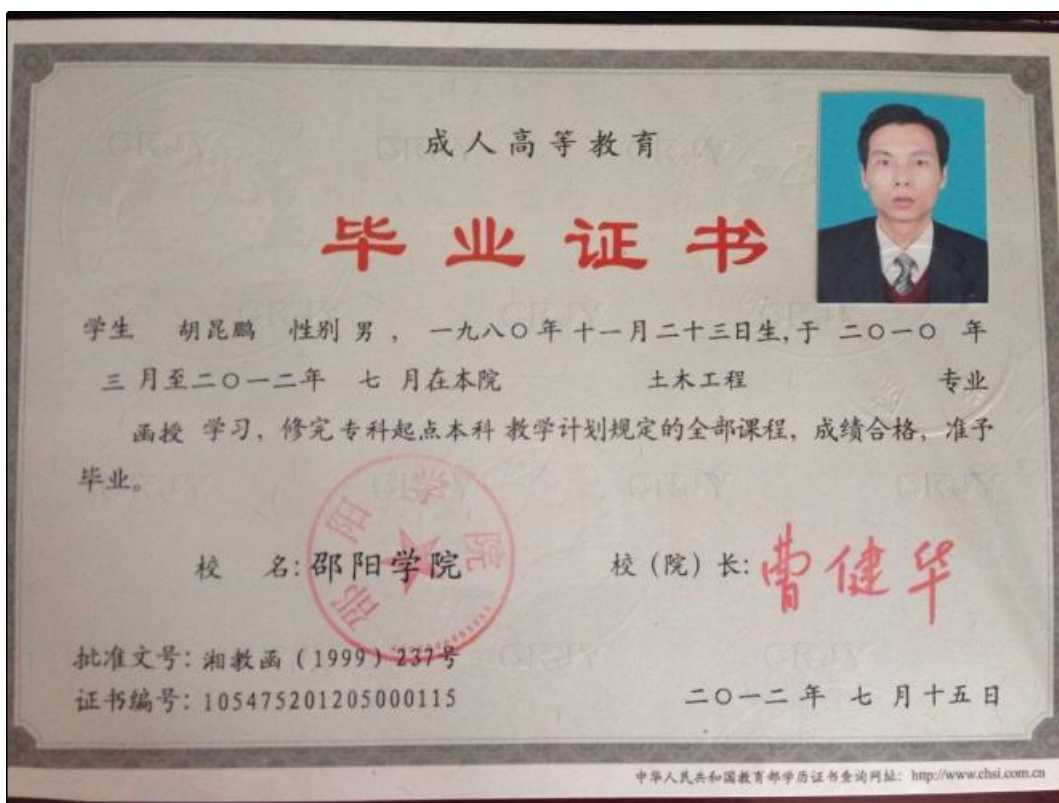 成人高等教育
毕业证书
学生 胡昆鹏 性别 男 ， 一九八〇年 十一月二十三日生,于 二〇一〇 年
三 月至二〇一二年 七 月在本院 土木工程 专业
函授 学习，修完 专科起点本科 教学计划规定的全部课程，成绩合格，准予
毕业。
校 名: 邵阳学院
邵阳学院
校（院）长: 曹健华
批准文号: 湘教函（1999）237号
证书编号: 105475201205000115
二〇一二年 七 月十五日
中华人民共和国教育部学历证书查询网址: http://www.chsi.com.cn